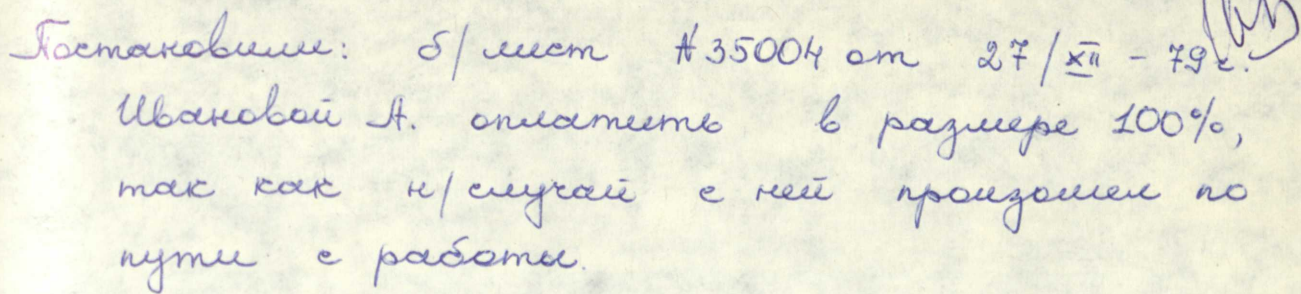 Постановили: б/лист №35004 от 27/XII - 79г.
Ивановой А. оплатить в размере 100%,
так как н/случай с ней произошел по
пути с работы.